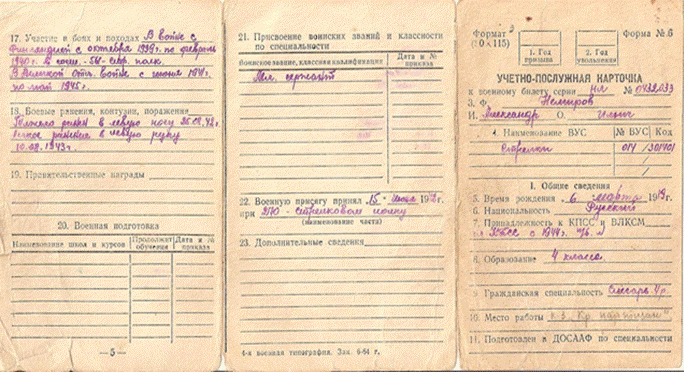 17. Участие в боях и походах В войне с
Финляндией с октября 1939г. по февраль
1940г. в сост. - 54 - стр. полк.
В Великой Отч. войне с июня 1941г.
по май 1945г.
18. Боевые ранения, контузии, поражения
ранен в левую ногу
ранение в левую руку
10.08.1943г.
19. Правительственные награды
20. Военная подготовка
Наименование школ и курсов
Продолжит. обучения
Дата и № приказа
— 5 —
21. Присвоение воинских званий и классности
по специальности
воинское звание, классная квалификация
Дата и № приказа
Мл. сержант
22. Военную присягу принял 15 -
при - стрелковом полку
(наименование части)
23. Дополнительные сведения
4-я военная типография. Зак. 6-64 г.
Формат
Форма № 6
1. Год призыва
2. Год увольнения
УЧЕТНО-ПОСЛУЖНАЯ КАРТОЧКА
к военному билету, серии НЛ № 0432033
З. Ф. Немиров
И. Александр О.
4. Наименование ВУС
№ ВУС
Код
Стрелки
1. Общие сведения
5. Время рождения 6 марта 19
6. Национальность Русский
7. Принадлежность к КПСС и ВЛКСМ
КПСС с 1944г.
8. Образование 4 класса.
9. Гражданская специальность Слесарь 4р.
10. Место работы к-з „Кр. партизан"
11. Подготовлен в ДОСААФ по специальности